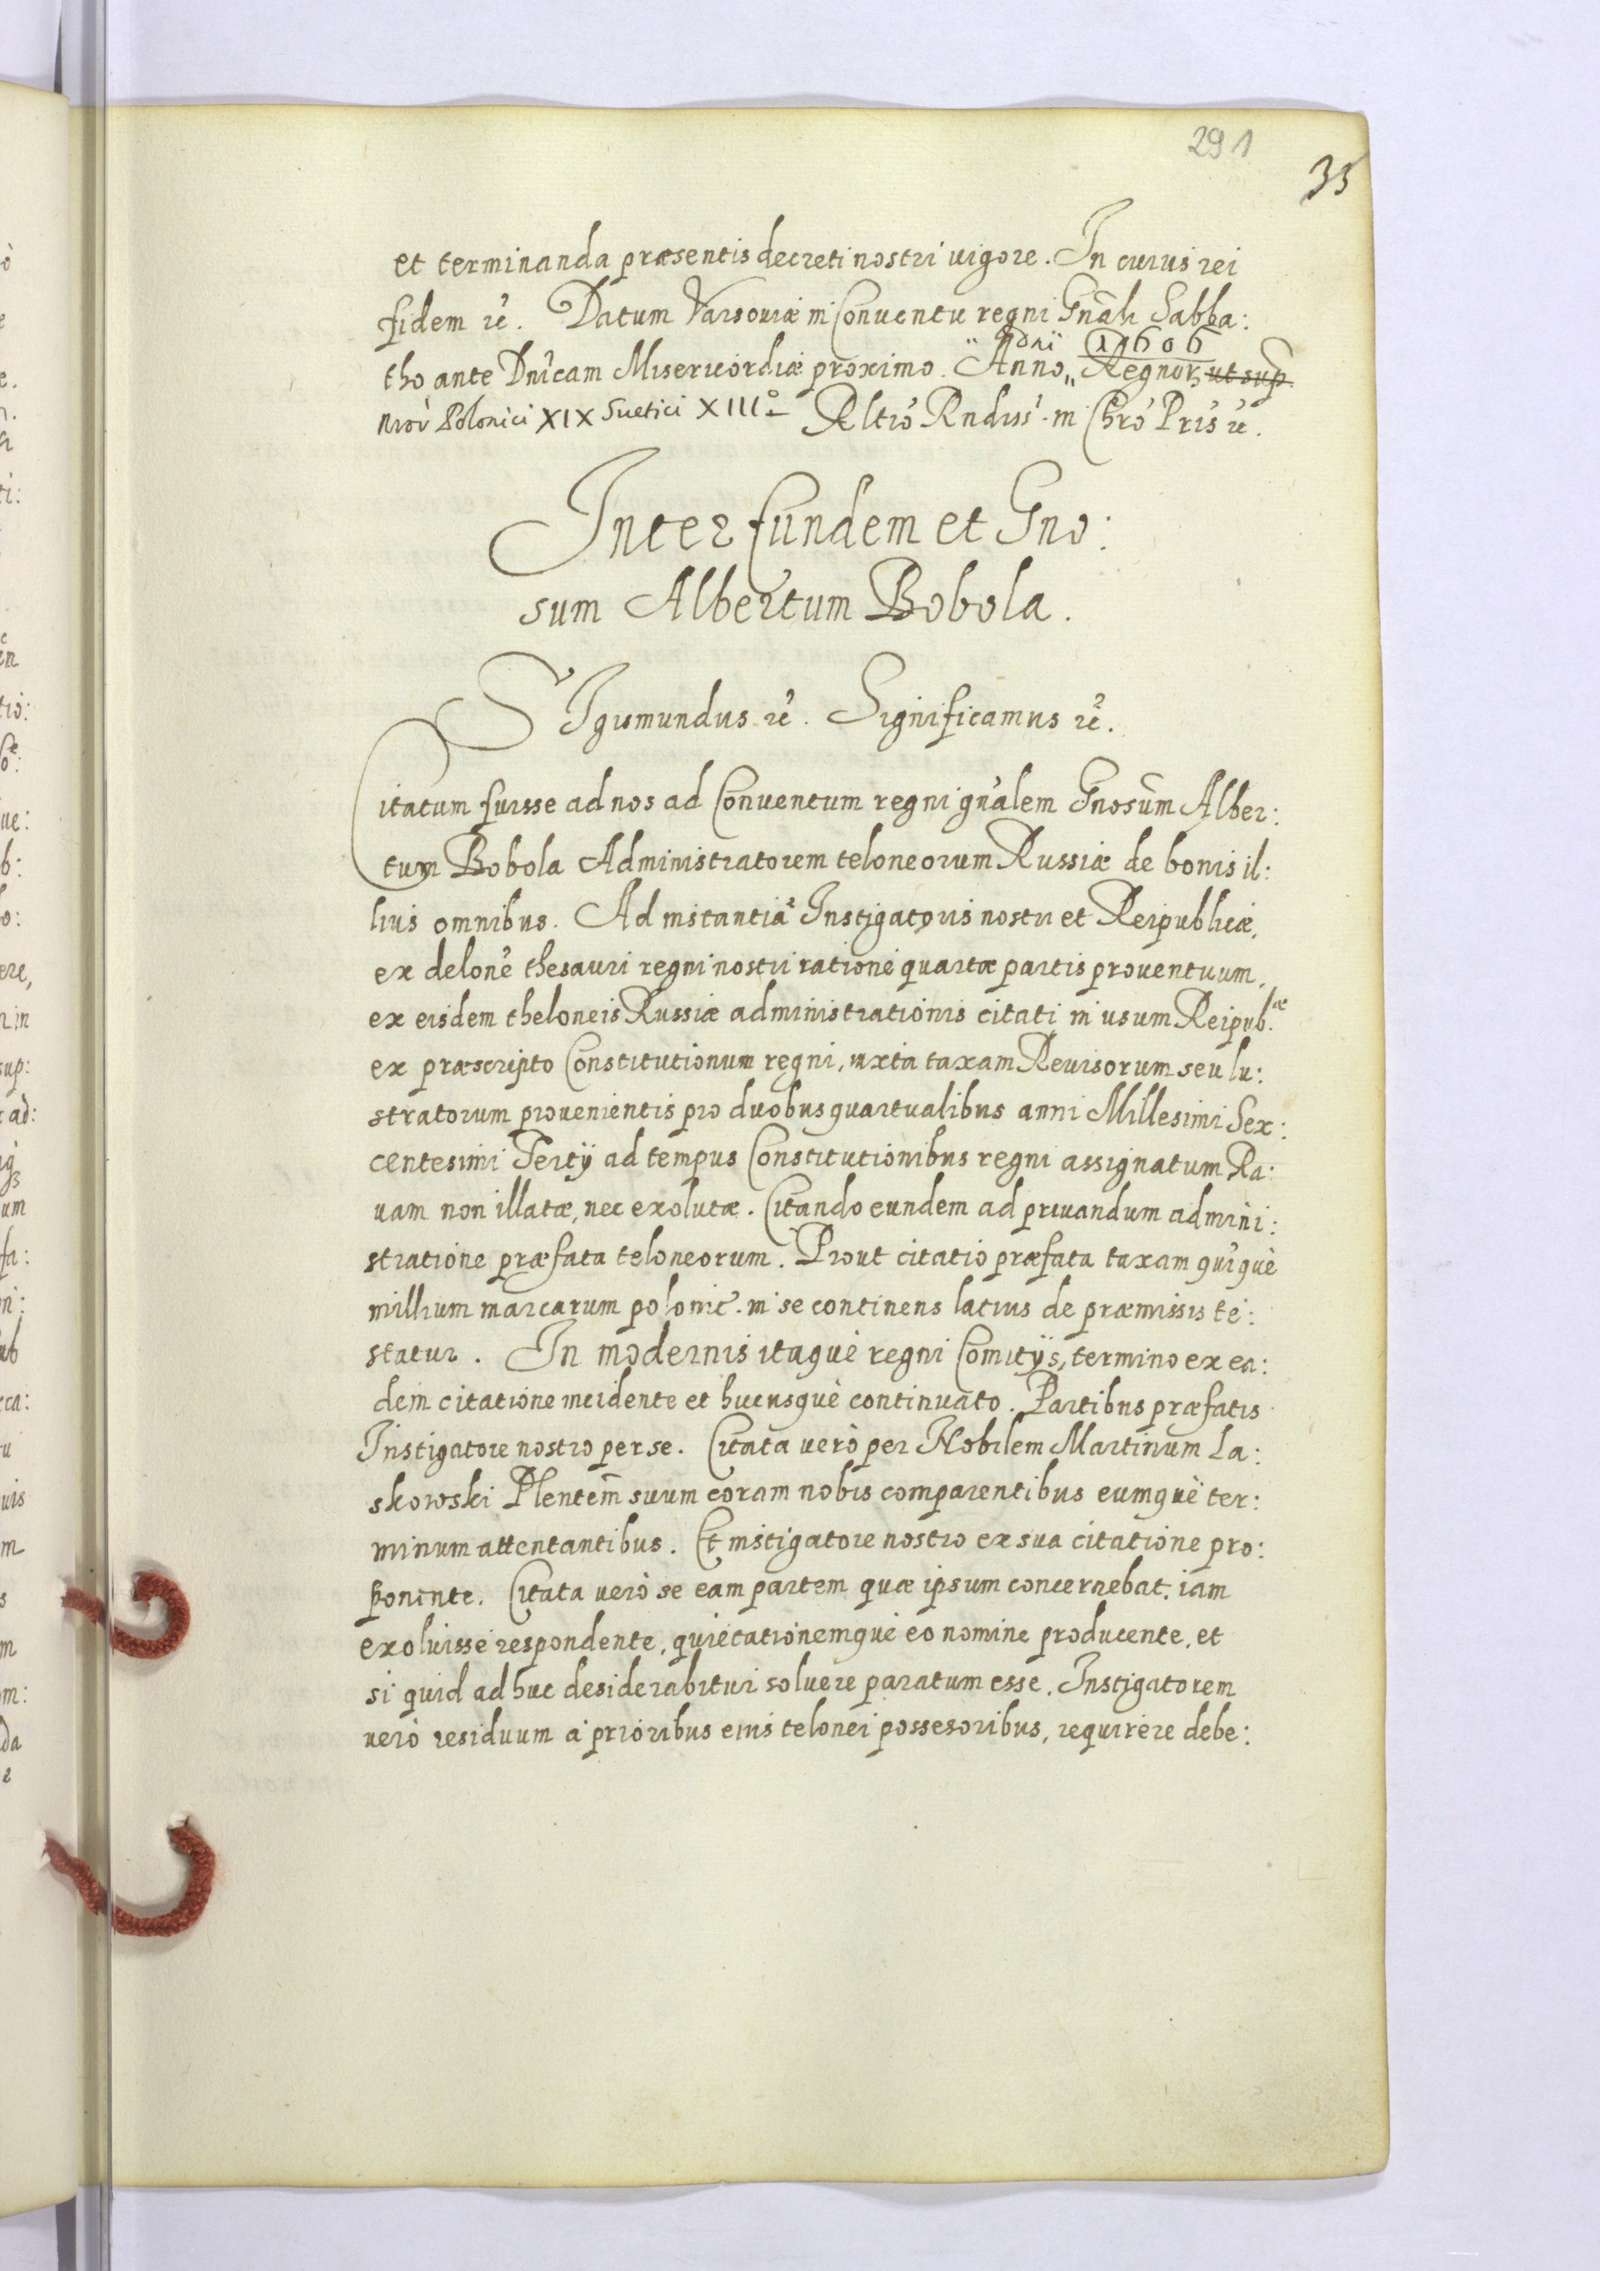 291
35
et terminanda præsentis decreti nostri vigore. In cuius rei
fidem ꝛc̃. Datum Varsoviæ in Conventu regni Gnãli Sabba:
tho ante Dnĩcam Misericordiæ proximo. Anno Dni 1606 Regnor, ut sup̃.
nrõr Polonici XIX Suetici XIIIº Rltiõ Rndiss̃. in Chrõ Pris̃ ꝛc̃.
Inter Eundem et Gno:
sum Albertum Bobola.
SIgismundus ꝛc̃. Significamus ꝛc̃.
Citatum fuisse ad nos ad Conventum regni gnãlem Gnosũm Alber:
tum Bobola Administratorem teloneorum Russiæ de bonis il:
lius omnibus. Ad instantiã Instigatoris nostri et Reipublicæ,
ex delonẽ thesauri regni nostri ratione quartæ partis proventuum,
ex eisdem theloneis Russiæ administrationis citati in usum Reipub.læ
ex præscripto Constitutionum regni, iuxta taxam Revisorum seu lu:
stratorum provenientis pro duobus quartualibus anni Millesimi Sex:
centesimi Tertÿ ad tempus Constitutionibus regni assignatum Ra:
vam non illatæ, nec exolutæ. Citando eundem ad privandum admini:
stratione præfata teloneorum. Prout citatio præfata taxam quĩquè
millium marcarum polonic̃. in se continens latius de præmissis te:
statur. In modernis itaquè regni Comitÿs, termino ex ea:
dem citatione incidente et hucusquè continuato. Partibus præfatis
Instigatore nostro per se. Citata verò per Nobilem Martinum La:
skowski Plentem̃ suum coram nobis comparentibus eumquè ter:
minum attentantibus. Et instigatore nostro ex sua citatione pro:
ponente. Citata verò se eam partem quæ ipsum concernebat, iam
exoluisse respondente, quietationemquè eo nomine producente, et
si quid ad huc desiderabitur solvere paratum esse. Instigatorem
verò residuum à prioribus eius telonei possesoribus, requirere debe: